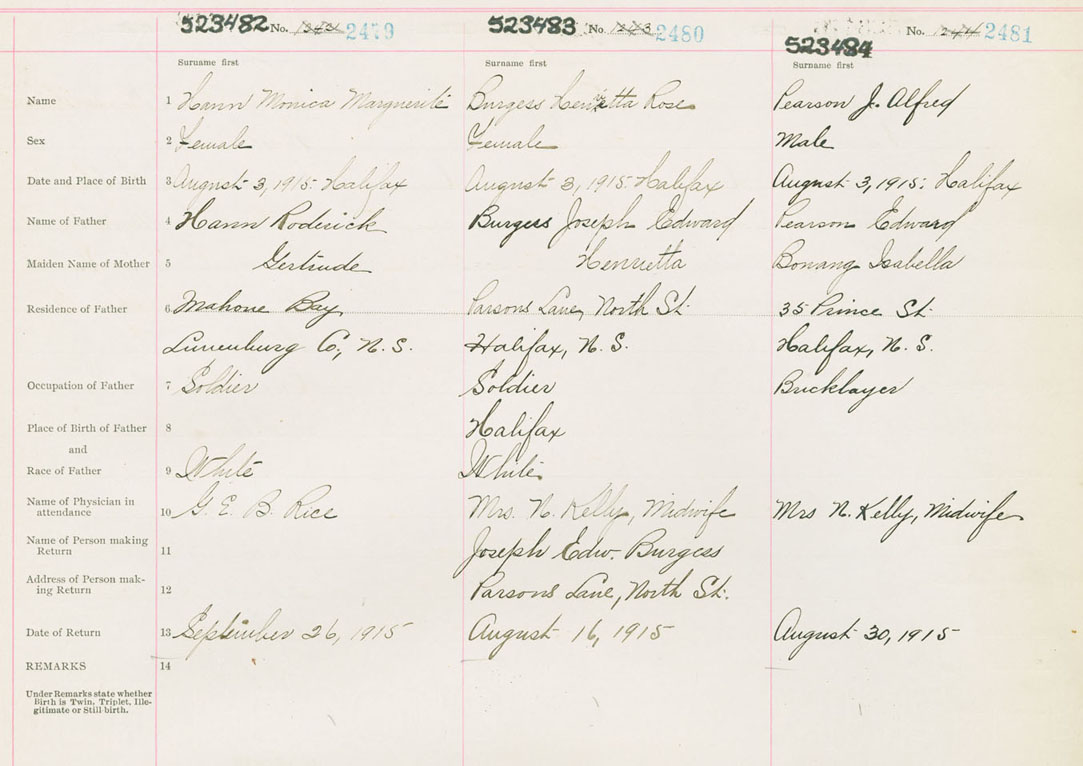 523482 No. 2479 523483 No. 2480 No. 2481
523484
Surname first Surname first Surname first
Name 1 Hann Monica Marguerite Burgess Henrietta Rose Pearson J. Alfred
Sex 2 Female Female Male
Date and Place of Birth 3 August 3, 1915. Halifax August 3, 1915. Halifax August 3, 1915. Halifax
Name of Father 4 Hann Roderick Burgess Joseph Edward Pearson Edward
Maiden Name of Mother 5 Gertrude Henrietta Bonang Isabella
Residence of Father 6 Mahone Bay Parsons Lane, North St. 35 Prince St.
Lunenburg Co., N.S. Halifax, N.S. Halifax, N.S.
Occupation of Father 7 Soldier Soldier Bricklayer
Place of Birth of Father 8 Halifax
and
Race of Father 9 White White
Name of Physician in
attendance 10 G. E. B. Rice Mrs. N. Kelly, Midwife Mrs N. Kelly, Midwife
Name of Person making
Return 11 Joseph Edw. Burgess
Address of Person mak-
ing Return 12 Parsons Lane, North St.
Date of Return 13 September 26, 1915 August 16, 1915 August 30, 1915
REMARKS 14
Under Remarks state whether
Birth is Twin, Triplet, Ille-
gitimate or Still-birth.